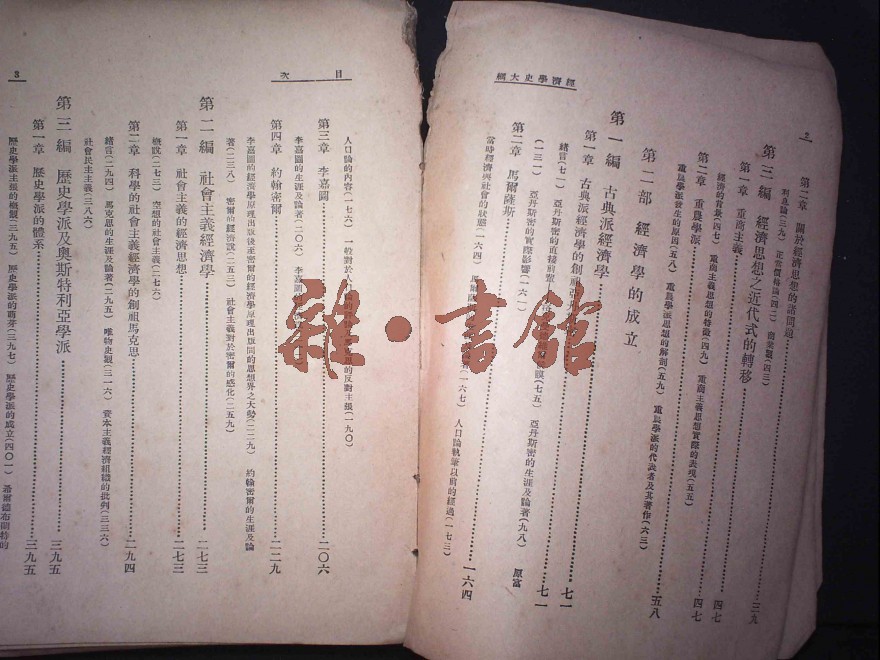 經濟學史大綱
2
第二章 關於經濟思想的諸問題
利息論(三九) 正當價格論(四二) 商業觀(四三)
第三編 經濟思想之近代式的轉移 三九
第一章 重商主義 四七
經濟的背景(四七) 重商主義思想的特徵(四九) 重商主義思想實際的表現(五五)
第二章 重農學派 四七
重農學派發生的原因(五八) 重農學派思想的解剖(五九) 重農學派的代表者及其著作(六三)
五八
第二部 經濟學的成立
第一編 古典派經濟學 七一
第一章 古典派經濟學的創祖亞 七一
緒言(七一) 亞丹斯密的直接前輩 (七五) 亞丹斯密的生涯及論著(九八) 原富
(一三一) 亞丹斯密的實際影響(一六一)
第二章 馬爾薩斯 一六四
當時經濟與社會的狀態(一六四) 馬爾薩 著(一六七) 人口論執筆以前的經過(一七三)
目次
3
人口論的內容(一七六) 一時對於人口 的反對主張(一九〇)
第三章 李嘉圖 二〇六
李嘉圖的生涯及論著(二〇六) 李嘉圖的
第四章 約翰密爾 二二九
李嘉圖的經濟學原理出版後至密爾的經濟學原理出版間的思想界之大勢(二二九) 約翰密爾的生涯及論
著(二三八) 密爾的經濟說(二五三) 社會主義對於密爾的感化(二五九)
第二編 社會主義經濟學 二七三
第一章 社會主義的經濟思想 二七三
概說(二七三) 空想的社會主義(二七六)
第二章 科學的社會主義經濟學的創祖馬克思 二九四
緒言(二九四) 馬克思的生涯及論著(二九五) 唯物史觀(三一六) 資本主義經濟組織的批判(三三六)
社會民主主義(三八六)
第三編 歷史學派及奧斯特利亞學派 三九五
第一章 歷史學派的體系 三九五
歷史學派主張的概觀(三九五) 歷史學派的萌芽(三九七) 歷史學派的成立(四〇一) 希爾德布蘭特的
雜·書館